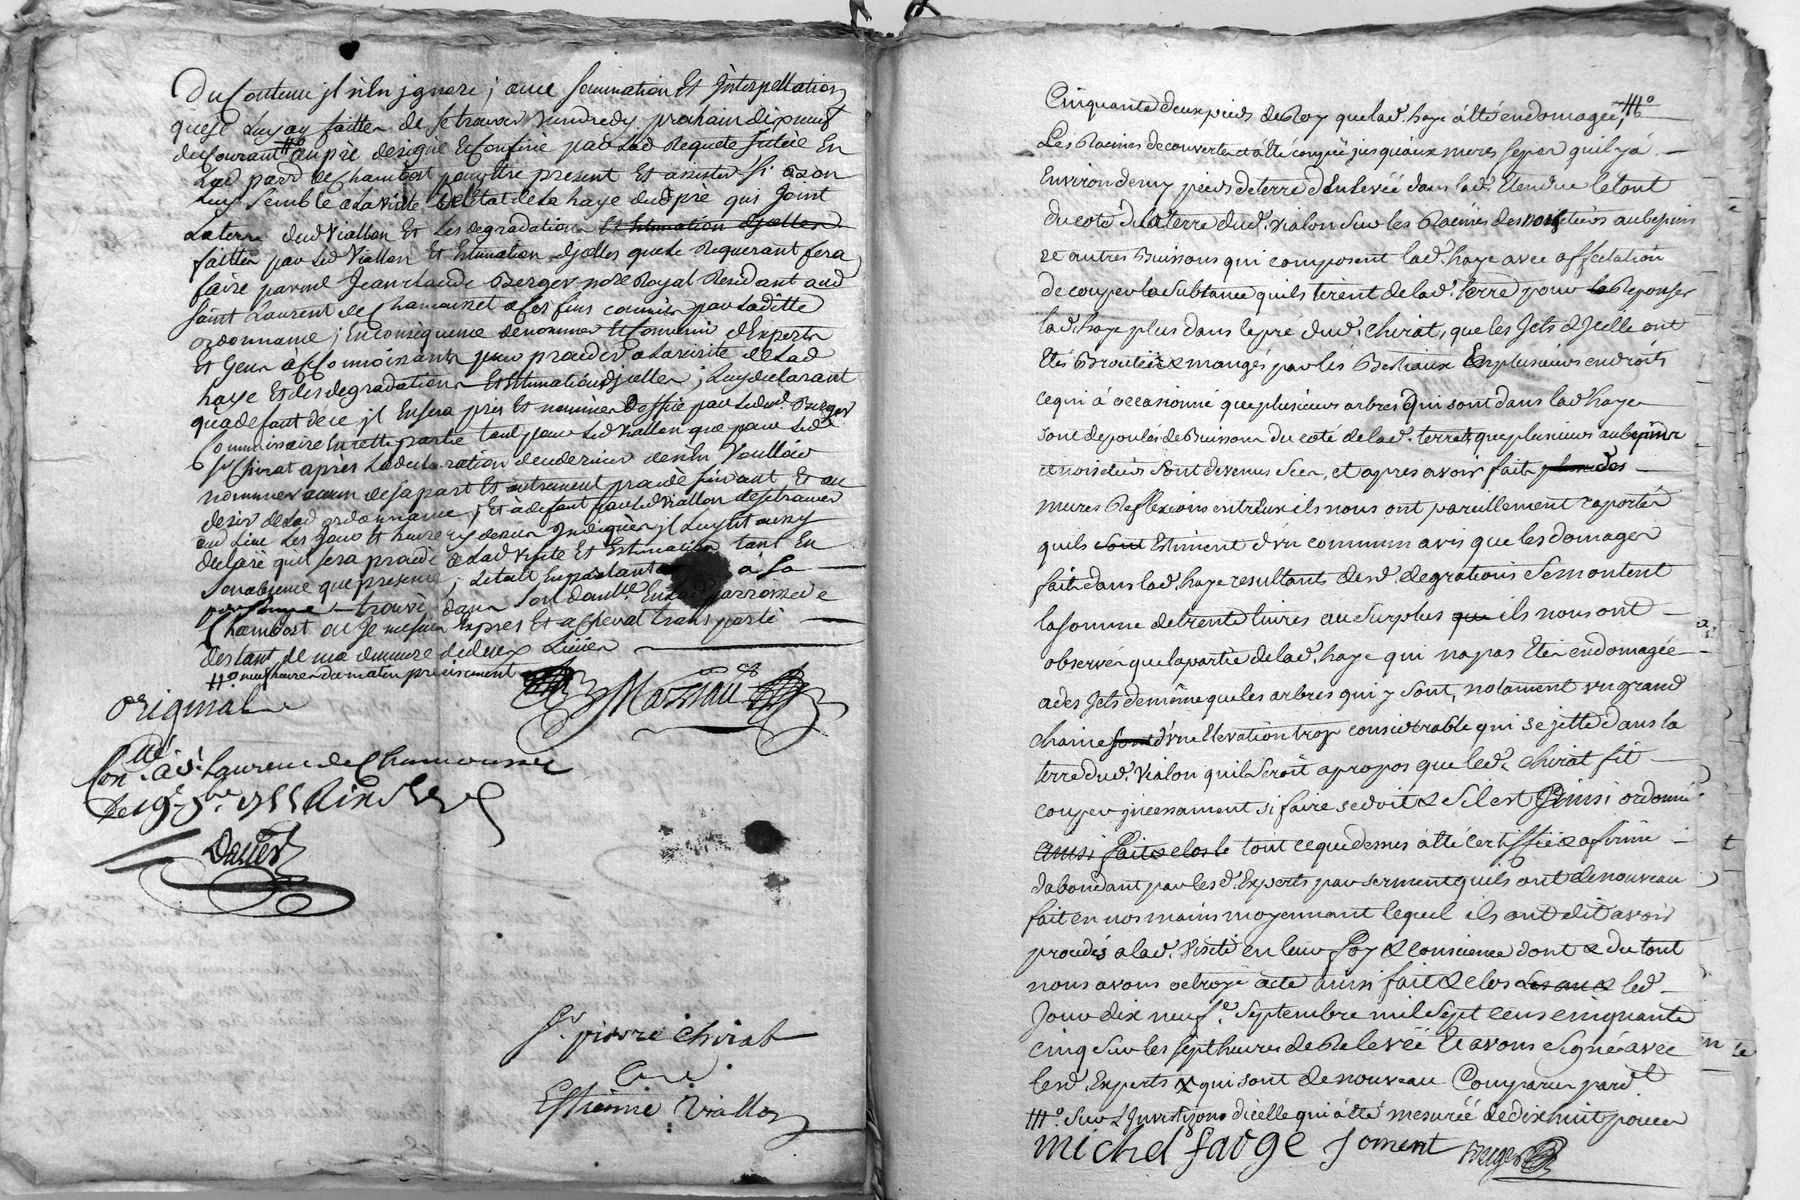 Du Contenu jl n'en jgnore ; avec sommation Et Jnterpellation
que je Luy ay faitte de se trouver Vendredy prochain dixneuf
du Courant au prè designé Et Confiné par Lad Requete scitüé En
Lad parr. de Chambost pour Etre present Et assister si Bon
Luy semble a La visitte de L'Etat de La haye dud prè qui Joint
La terre dud Viallon Et Les degradations Et Estimation djcelles
faittes par Led Viallon Et Estimation djcelles que Le Requerant fera
faire par me Jean claude Berger no.re Royal Residant aud
saint Laurent de Chamousset a ces fins commis par Laditte
ordonnance ; En consequence de nommer Et Convenir d'Experts
Et Gens à Connoissants pour proceder a La visite de Lad
haye Et des degradations Et Estimation djcelles ; Luy declarant
qua defaut de ce jl En sera pris Et nommé d'office par Led me Berger
Commissaire En cette partie tant pour Led Viallon que pour Led
sr Chirat apres La declaration de ce dernier de n'en Voulloir
nommer aucun de sa part Et autrement procedé suivant Et au
desir de Lad ordonnance ; Et à defaut par Led Viallon de se trouver
au Lieu Les Jour Et heure cy dessus Indiqués jl Luy Est aussy
declaré qu'il sera procedé a Lad Visite Et Estimation tant En
son absence que presence ; Le tout En parlant a sa
personne trouvé dans son domlle En Lad parroisse de
Chambost ou Je me suis Exprès Et a cheval transporté
distant de ma demeure de deux Lieües
#o neuf heures du matin precisement
Massau
original
Con.llé a st Laurent de Chamousset
Le 19e 7bre 1755 Rx
Davet
sr pierre Chirat
C
Estienne Viallon
Cinquante deux pieds de Roy que lad. haye à été endomagée, #o
Les Racines decouvertes et a été coupée jusqu'aux meres separ qu'il y à
Environ demy pied de terre d'Enlevée dans lad. Etendue le tout
du coté de la terre dud. vialon sur les Racines des noisetiers aubepins
et autres Buissons qui composent lad. haye avec affectation
de couper la substance qu'ils tirent de lad. terre pour la Repouser
lad. haye plus dans le pré dud. chirat, que les Jets d'Jcelle ont
Etés Broutés & mangés par les Bestiaux En plusieurs endroits
ce qui à occasionné que plusieurs arbres qui sont dans lad haye
sont depoulés de Buissons du coté de lad. terre, que plusieurs aubepins
et noisetiers sont devenus secs, et apres avoir fait plusieurs
mures Reflexions entr'eux ils nous ont pareillement raporté
quils sont Estiment d'un commun avis que les domages
faits dans lad. haye resultants desd. degrations se montent
la somme de trente livres au surplus que ils nous ont
observés que la partie de lad. haye qui na pas Etée endomagée
a des Jets de même que les arbres qui y sont, notament un grand
chaine sont d'une Elevation trop considerable qui se jette dans la
terre dud. vialon quil seroit apropos que led. chirat fit
couper jncessament si faire se doit & s'il est Ainsi ordonné
ainsi fait & clos le tout ce que dessus a été certiffié & afirmé
d'abondant par lesd. Experts par serment quils ont de nouveau
fait en nos mains moyennant lequel ils ont dit avoir
procedés a lad. visite en leur foy & conscience dont & du tout
nous avons octroyé acte ainsi fait & clos Les an & led
Jour dix neuf.e septembre mil sept cens cinquante
cinq sur les sept heures de Relevée Et avons signé avec
lesd. Experts & qui sont de nouveau Comparus pard.t
#o sur l'Jnvertizons dicelle qui a été mesurée de dix huit pouces
michel farge Joment Berger